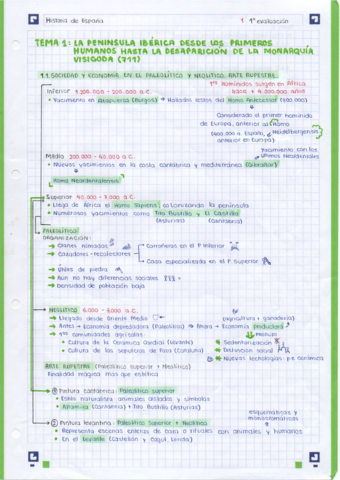 Historia de España
1. 1ª evaluación
TEMA 1: LA PENÍNSULA IBÉRICA DESDE LOS PRIMEROS
HUMANOS HASTA LA DESAPARICIÓN DE LA MONARQUÍA
VISIGODA (711)
1.1. SOCIEDAD Y ECONOMÍA EN EL PALEOLÍTICO Y NEOLÍTICO. ARTE RUPESTRE.
1ºs Homínidos surgen en África
Inferior
hace 4.000.000 años
• Yacimiento en Atapuerca (Burgos) → Hallados restos del Homo Antecessor
Considerado el primer homínido
de Europa, anterior al Homo
Heidelbergensis
anterior en Europa)
Yacimiento con los
Media
últimos Neandertales
• Nuevos yacimientos en la costa cantábrica y mediterránea (Gibraltar)
Homo Neanderthalensis
Superior
• Llega de África el Homo Sapiens, colonizando la península
• Numerosos yacimientos como Tito Bustillo y El Castillo
(Asturias) (Cantabria)
PALEOLÍTICO
ORGANIZACIÓN:
→ Clanes nómadas
→ Carroñeros en el P. Inferior
→ Cazadores-recolectores
→ Caza especializada en el P. Superior
→ Útiles de piedra
→ Aun no hay diferencias sociales
→ Densidad de población baja
NEOLÍTICO
→ Llegado desde Oriente Medio
(agricultura + ganadería)
→ Antes → Economía depredadora (Paleolítico) → Ahora → Economía productora
→ 1ªs comunidades agrícolas
• Cultura de la Cerámica Cardial (Levante)
Sedentarización
• Cultura de los sepulcros de Fosa (Cataluña)
División social
Nuevas tecnologías: p.e cerámica
ARTE RUPESTRE (Paleolítico Superior + Neolítico)
Finalidad mágica más que estética
① Pintura cantábrica: Paleolítico Superior
• Estilo naturalista: animales aislados y símbolos
• Altamira (Cantabria) + Tito Bustillo (Asturias)
esquemáticas y
monocromáticas
② Pintura levantina: Paleolítico Superior + Neolítico
• Representa escenas bélicas de caza o rituales con animales y humanos
• En el levante